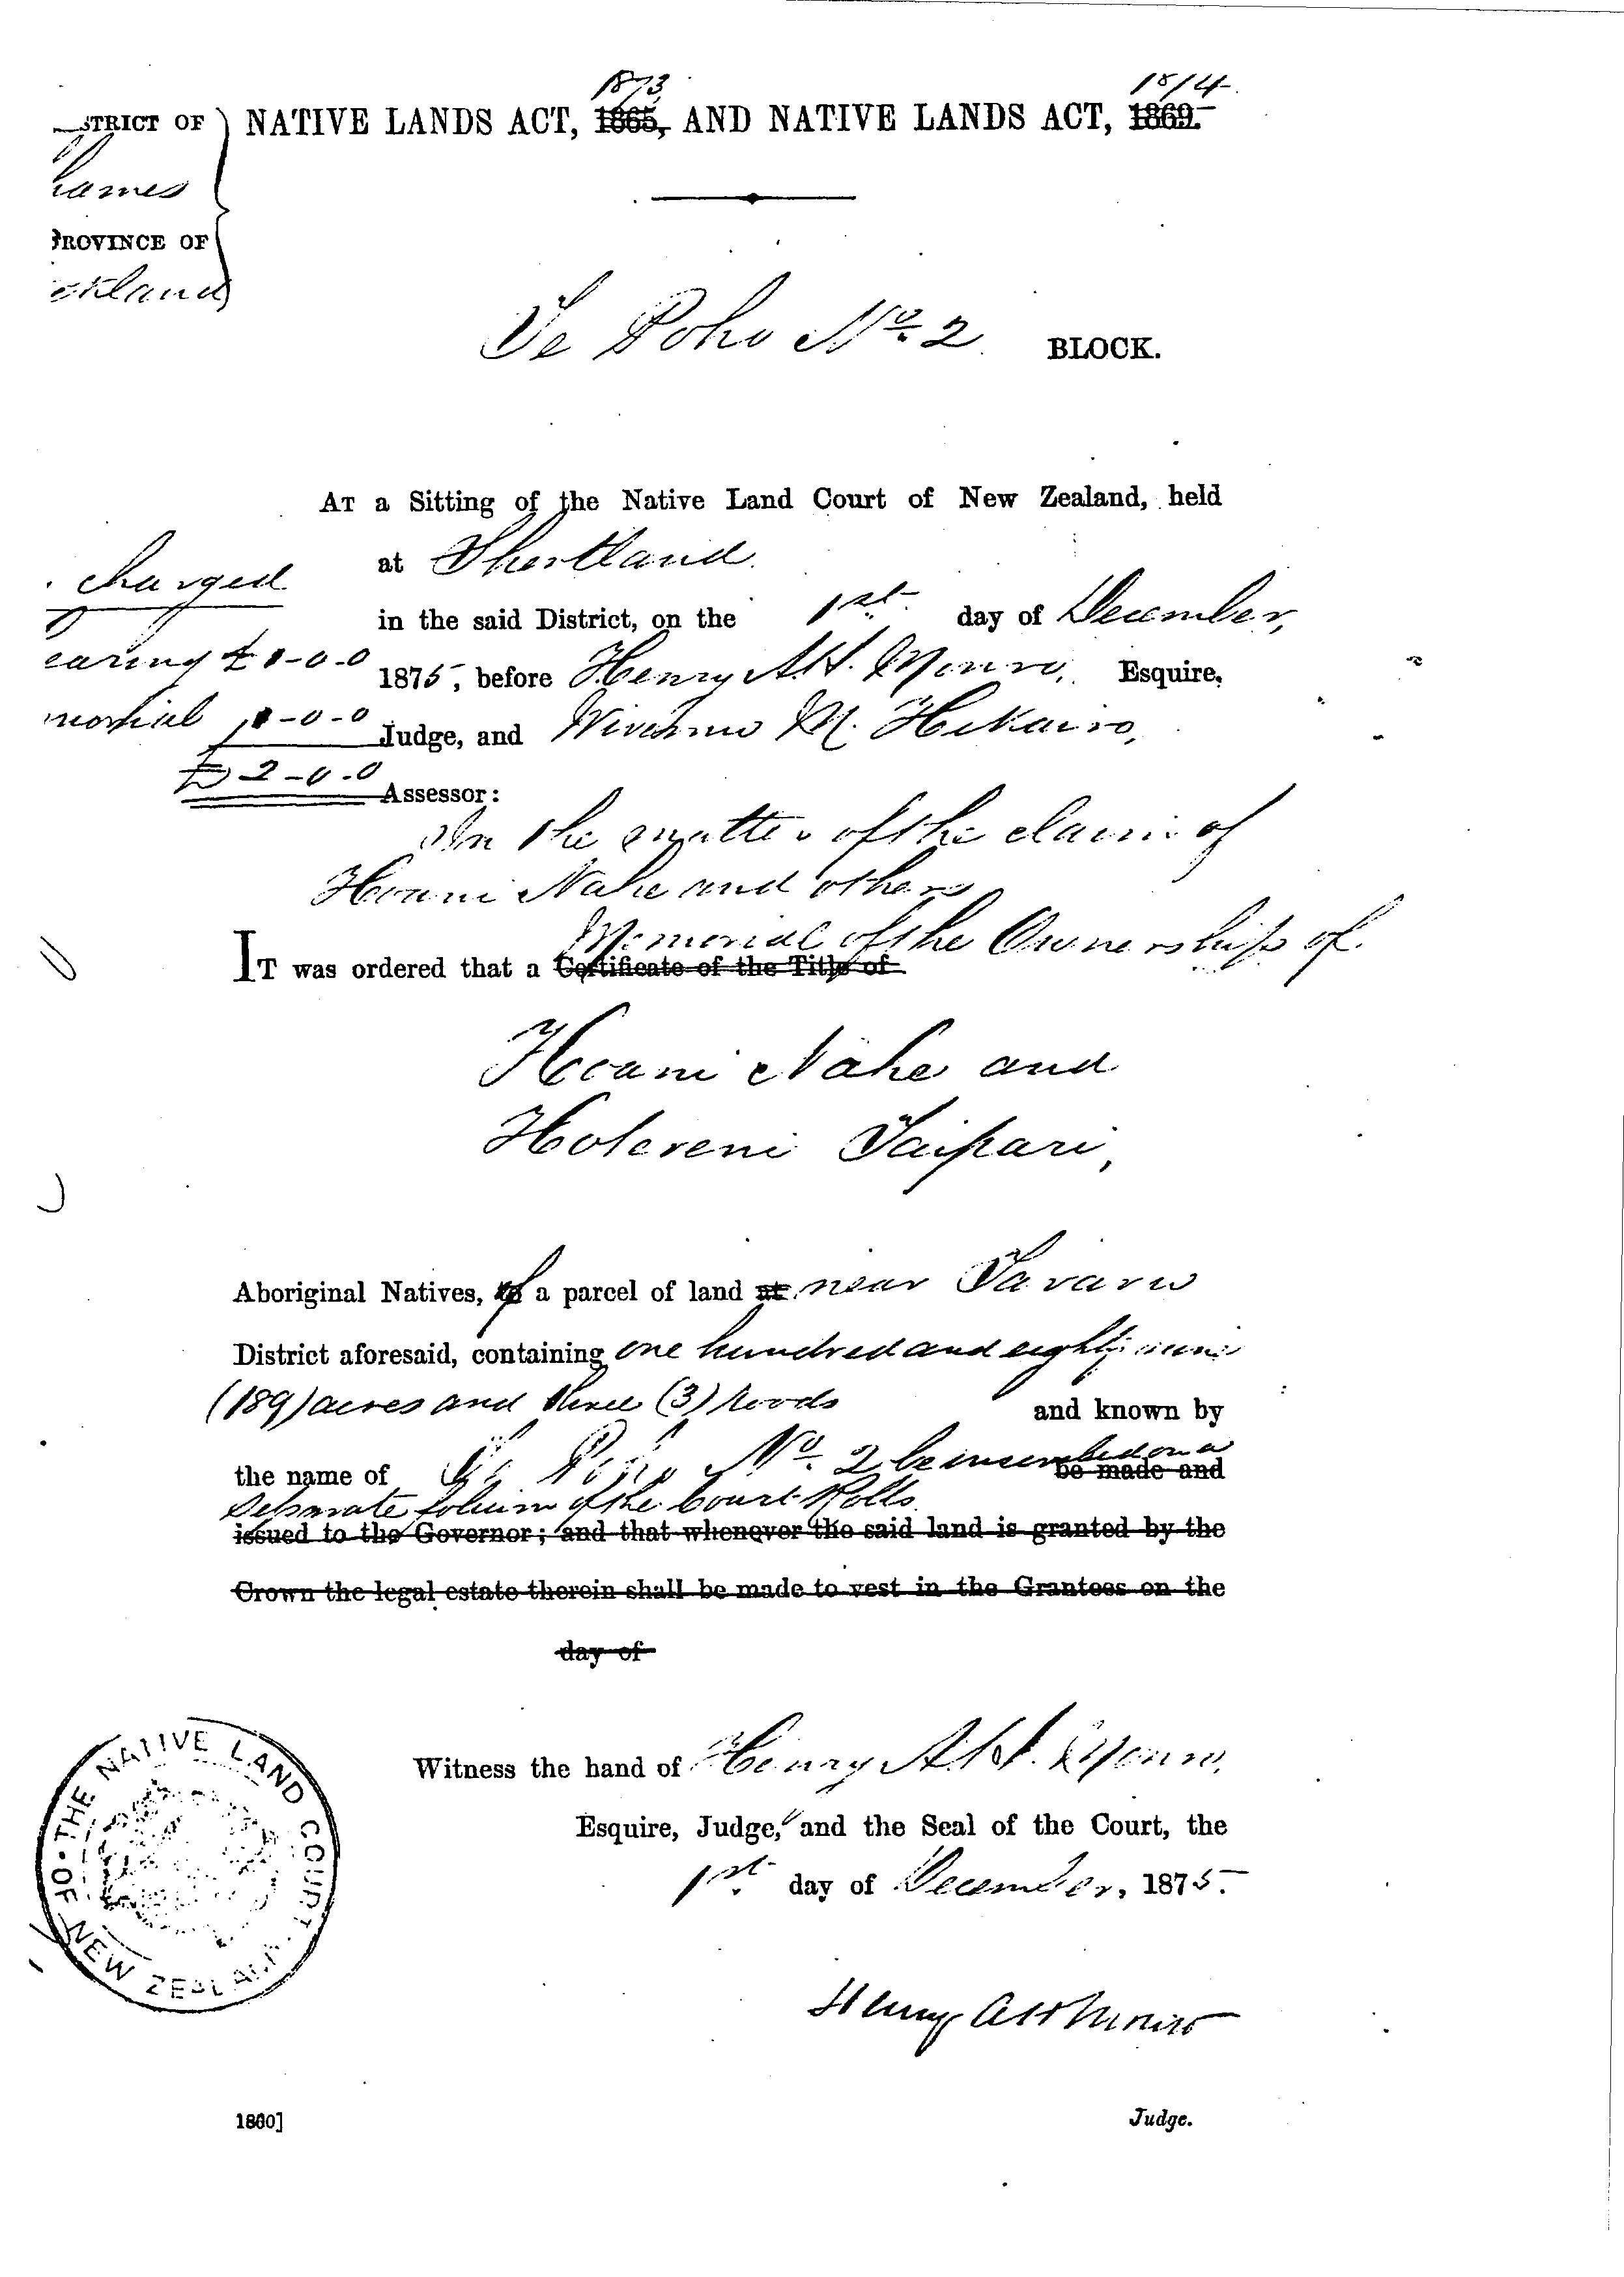 STRICT OF
hames
PROVINCE OF
ckland
1873 1874
NATIVE LANDS ACT, 1865, AND NATIVE LANDS ACT, 1869.
Te Poho No. 2 BLOCK.
AT a Sitting of the Native Land Court of New Zealand, held
at Shortland.
in the said District, on the 1st day of December,
1875, before Henry A.H. Monro, Esquire,
Judge, and Wiremu M. Hikairo,
Assessor:
charged
earing £1-0-0
morial 1-0-0
£2-0-0
In the matter of the claim of
Hoani Nahe and others
Memorial of the Ownership of
IT was ordered that a Certificate of the Title of
Hoani Nahe and
Hotereni Taipari,
Aboriginal Natives, of a parcel of land at near Tararu
District aforesaid, containing one hundred and eighty nine
(189) acres and three (3) roods and known by
the name of Te Poho No. 2 be inscribed on a be made and
separate folium of the Court Rolls.
issued to the Governor; and that whenever the said land is granted by the
Crown the legal estate therein shall be made to vest in the Grantees on the
day of
Witness the hand of Henry A.H. Monro,
Esquire, Judge, and the Seal of the Court, the
1st day of December, 1875.
THE NATIVE LAND COURT OF NEW ZEALAND
Henry AH Monro
Judge.